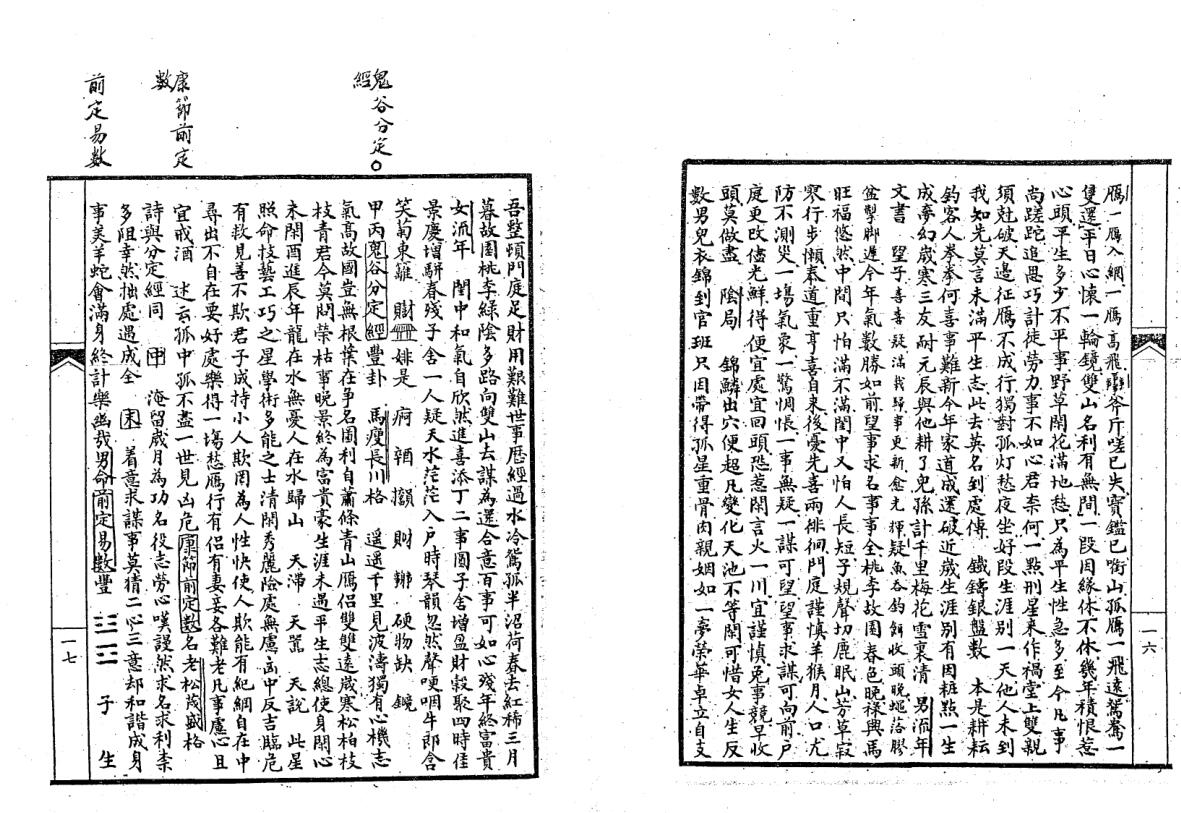 鴈一鴈入網一鴈高飛斧斤嗟已失寶鑑已啣山孤鴈一飛遠鴛鴦一
隻還平日心懷一輪鏡雙山名利有無間一段因緣休不休幾年積恨惹
心頭平生多少不平事野草閑花滿地愁只為平生性急多至今凡事
尚蹉跎進思巧計徒勞力事不如心君奈何一點刑星來作禍堂上雙親
須尅破天邊征鴈不成行獨對孤灯愁夜坐好段生涯別一天他人未到
我知先莫言未滿平生志此去英名到處傳 鐵鑄銀盤數 本是耕耘
釣客人拳拳何喜事難新今年家道成還破近歲生涯別有因粧點一生
成夢幻歲寒三友耐元辰與他耕了兒孫計千里梅花雪裏清 男流年
文書 望子喜喜疑滿我歸事更新愈光輝疑魚吞釣餌收頭晚蠅落膠
盆掣脚遲今年氣數勝如前望事求名事事全桃李故園春色晚祿興馬
旺福悠然中間只怕滿不滿閏中又怕人長短子規聲切鹿眠山芳草寂
寒行步懶奉道重亨喜自來後憂先喜兩徘徊門庭謹慎羊猴月人口尤
防不測災一塲氣衆一驚惆悵一事無疑一謀可望望事求謀可向前戸
庭更改儘光鮮得便宜處宜回頭恐惹閑言火一川宜謹慎免事競早收
頭莫做盡 陰局 錦鱗出穴便超凡變化天池不等閑可惜女人生反
數男兒衣錦到官班只因帶得孤星重骨肉親姻如一夢榮華卓立自支
一六
鬼谷分定
經
康節前定
數
前定易數
吾整頓門庭足財用艱難世事歷經過水冷鴛孤半沼荷春去紅稀三月
暮故園桃李綠陰多路向雙山去謀為還合意百事可如心殘年終富貴
女流年 閏中和氣自欣然進喜添丁二事圓子舍增盈財穀聚四時佳
景慶增騈春殘子舍一人疑天水茫茫入戸時琴韻忽然聲哽咽牛郎含
笑菊東籬 財 婔是 硬物缺 鏡
甲丙鬼谷分定經豐卦 馬瘦長川格 遥遥千里見波濤獨有心機志
氣高故國豈無根葉在爭名圖利自蕭條青山鴈侶雙雙遠歲寒松柏枝
枝青君今莫問榮枯事晚景終為富貴豪生涯未遇平生志總使身閑心
未閑酉進辰年龍在水無憂人在水歸山 天沸 天罡 天說 此星
照命技藝工巧之星學術多能之士清閑秀麗險處無慮凶中反吉臨危
有救見善不欺君子成持小人欺罔為人性快使人欺能有紀綱自在中
尋出不自在要好處樂得一塲愁鴈行有侶有妻妾各難老凡事慮心且
宜戒酒 述云孤中孤不盡一世見凶危康節前定數名老松茂盛格
詩與分定經同 中 淹留歲月為功名役志勞心嘆謾然求名求利柰
多阻幸然拙處遇成全 末 着意求謀事莫猜二心三意却和諧成身
事美羊蛇會滿身終計樂幽哉男命前定易數豐 子 生
一七